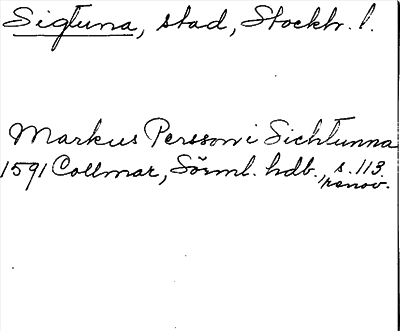 Sigtuna, stad, Stockh. l.
Markus Persson i Sichtunna
1591 Collmar, Sörml. hdb., s. 113.
renov.